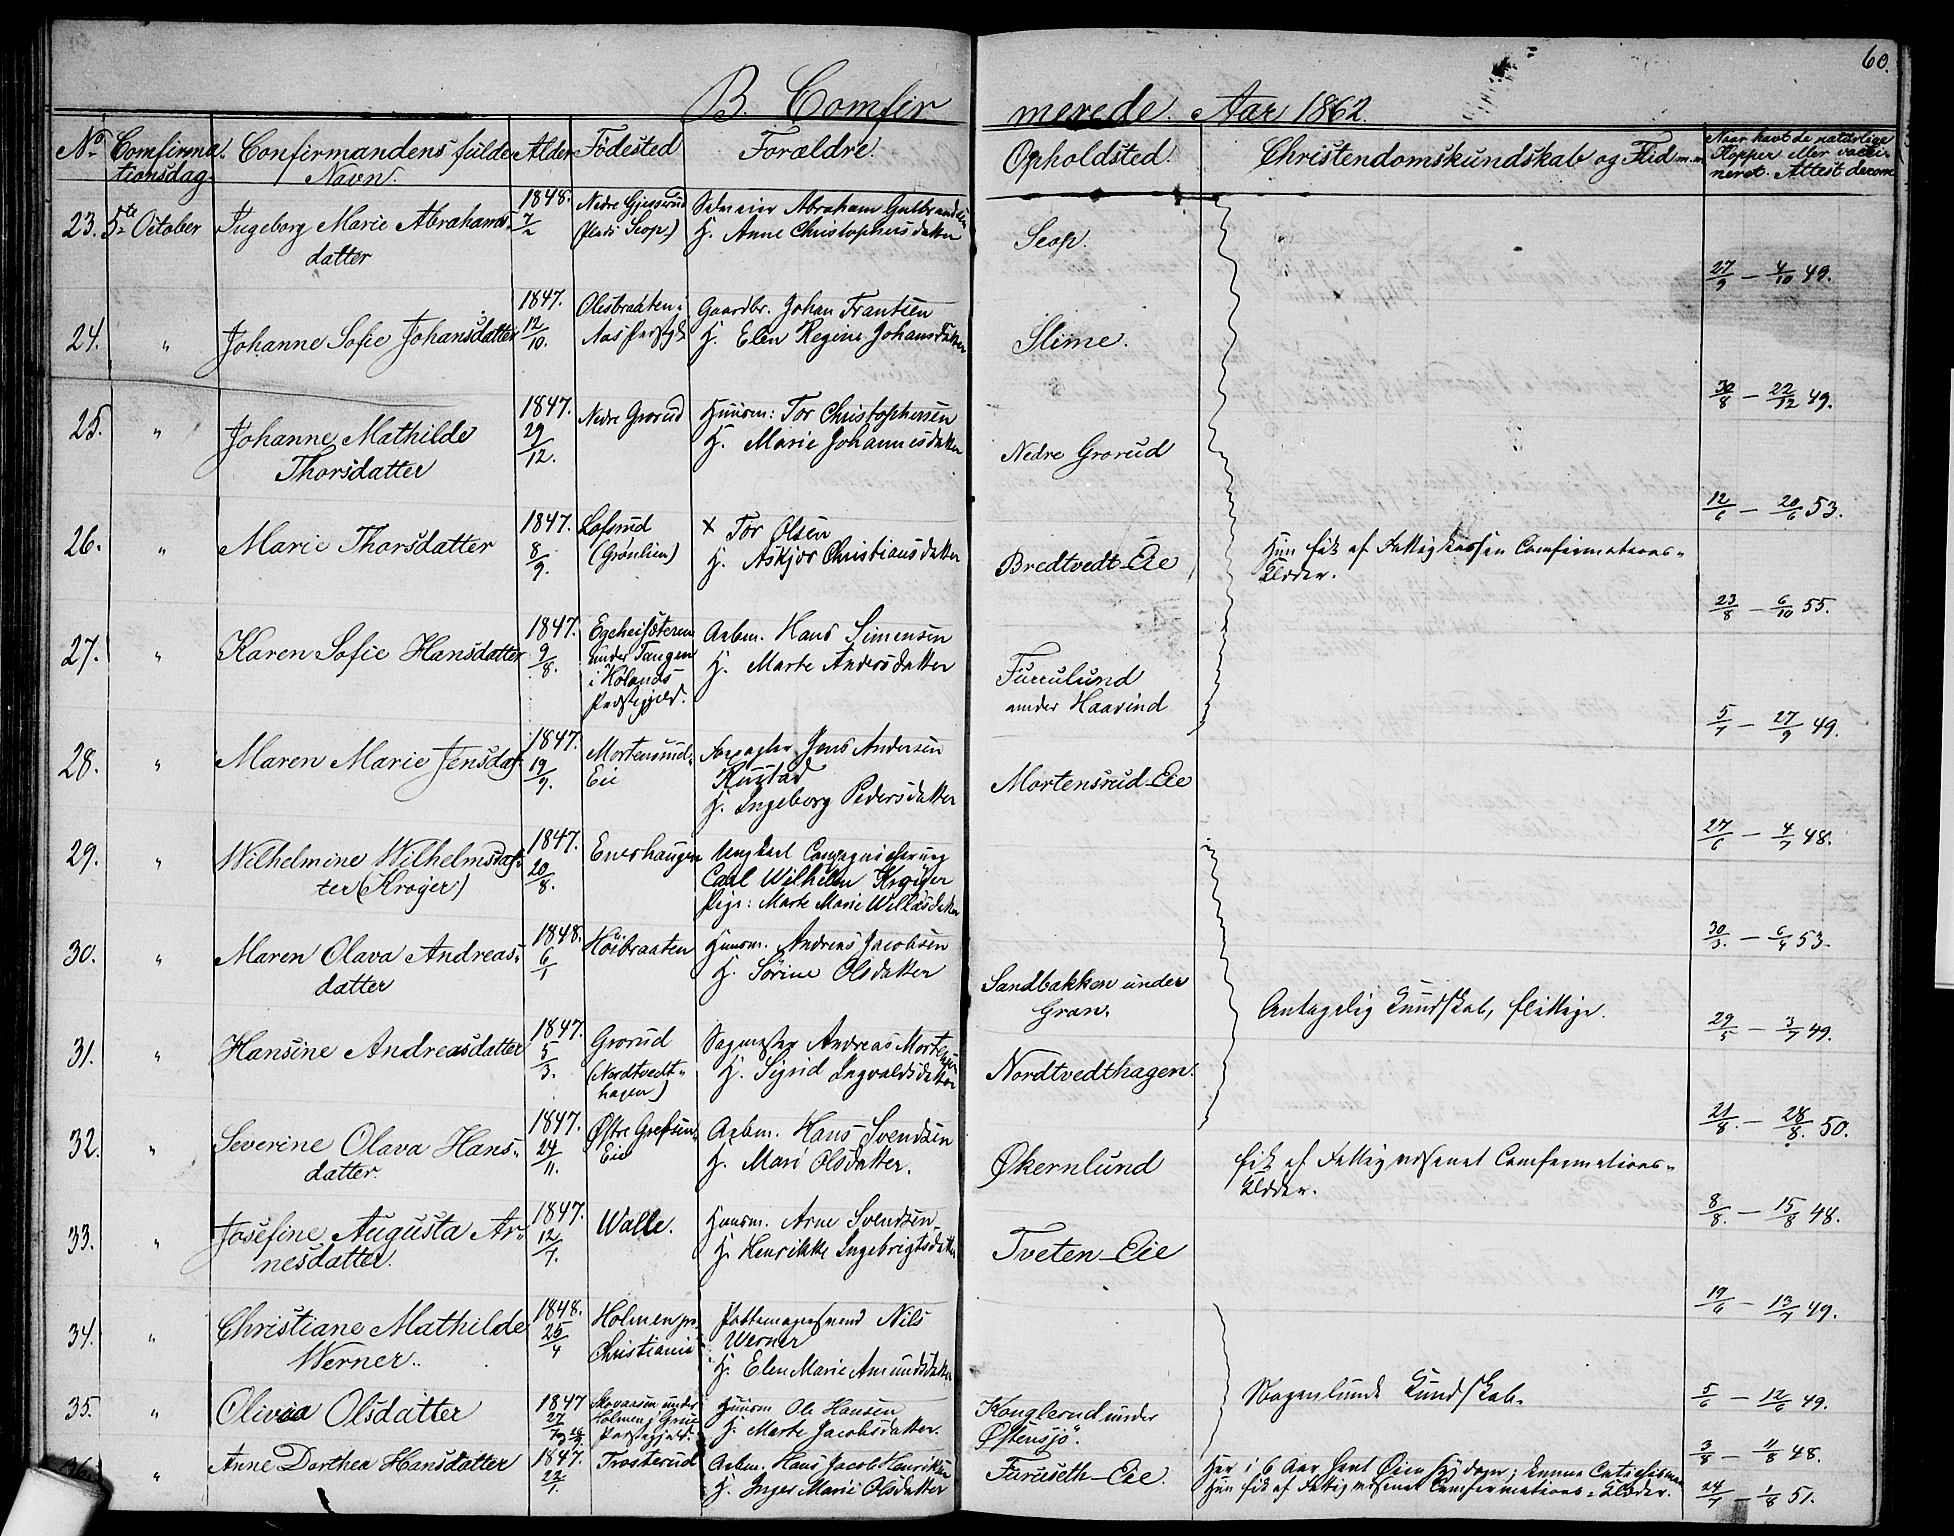 60.
B. Comfir
merede. Aar 1862.
No Comfirma- Confirmandens fulde Alder Fødested Forældre. Opholdsted. Christendomskundskab og Flid m.m. Naar havt de natørlige
tionsdag. Navn. Kopper eller vacci-
neret. Attest derom
23. 5te October Ingeborg Marie Abrahams- 1848. Nedre Gjesserud Abraham Gulbrandsen
datter 7/2 (Plads Seop.) H. Anne Christophersdatter Seop.
27/9 – 4/10 49.
24. " Johanne Sofie Johansdatter 1847. Olesbraaten i Gaardbr. Johan Frantsen
12/10. Aas H. Elen Regine Johansdatter Slime.
30/8 – 22/12 49.
25. " Johanne Mathilde 1847. Nedre Grorud Huusm: Tor Christophersen
Thorsdatter 29/12. H. Marie Johannesdatter Nedre Grorud
12/6 – 20/6 53.
26. " Marie Thorsdatter 1847. Lofsrud × Tor Olsen
8/9. (Grønlien) H. Askjør Christiansdatter Bredtvedt-Eie Hun fik af Fattigkassen Comfirmations-
Klæder.
23/8 – 6/10 55.
27. " Karen Sofie Hansdatter 1847. Arbm. Hans Simensen
9/8. under Tangen H. Marte Andersdatter Furulund
i Hølands under Haavind
Præstegjeld.
5/7 – 27/9 49.
28. " Maren Marie Jensdat- 1847. Mortensrud- Forpagter Jens Andersen
19/9. Eie Rustad Mortensrud-Eie
H. Ingeborg Pedersdatter
27/6 – 4/7 48.
29. " Wilhelmine Wilhelmsdat- 1847. Enerhaugen Ungkarl
ter (Krøger) 20/8. Carl Wilhelm Krøger
Pige: Marte Marie Willasdatter
30/3. – 6/4 53.
30. " Maren Olava Andreas- 1848. Høibraaten Huusm. Andreas Jacobsen
datter 6/1 H. Sørine Olsdatter Sandbakken under
Gran. Antagelig Kundskab, flittige.
29/5 – 3/7 49.
31. " Hansine Andreasdatter 1847. Grorud Sagmester Andreas Mortensen
5/3. (Nordtvedt- H. Sigrid Ingvaldsdatter Nordtvedthagen.
hagen)
21/8. – 28/8. 50.
32. " Severine Olava Hans- 1847. Østre Grefsen- Arbm. Hans Svendsen
datter. 24/11. Eie H. Mari Olsdatter. Økernlund fik af Fattigvæsenet Comfirmations-
Klæder.
8/8. – 15/8 48.
33. " Josefine Augusta Ar- 1847. Walle. Huusm. Arne Svendsen
nesdatter. 12/7. H. Henrikke Ingebrigtsdatter Tveten-Eie
19/6 – 13/7 49.
34. " Christiane Mathilde 1848. Holmen pr. Pottemagersvend Nils
Werner. 25/4 Christiania Werner
H. Elen Marie Amundsdatter
5/6 – 12/6 49.
35. " Olivia Olsdatter 1847 under Huusm Ole Hansen Konglerud under Kundskab.
27/7 Holmen i Grue H. Marte Jacobsdatter. Østensjø.
Præstegjeld.
3/8 – 11/8 48.
36. " Anne Dorthea Hansdatter 1847. Trosterud Arbm. Hans Jacob Henriksen Furuseth-Eie. Har i 6 Aar havt Øiensygdom;
22/1. H. Inger Marie Olsdatter Hun fik af Fattigvæsenet Comfirmations-Klæder.
24/7 – 1/8 51.